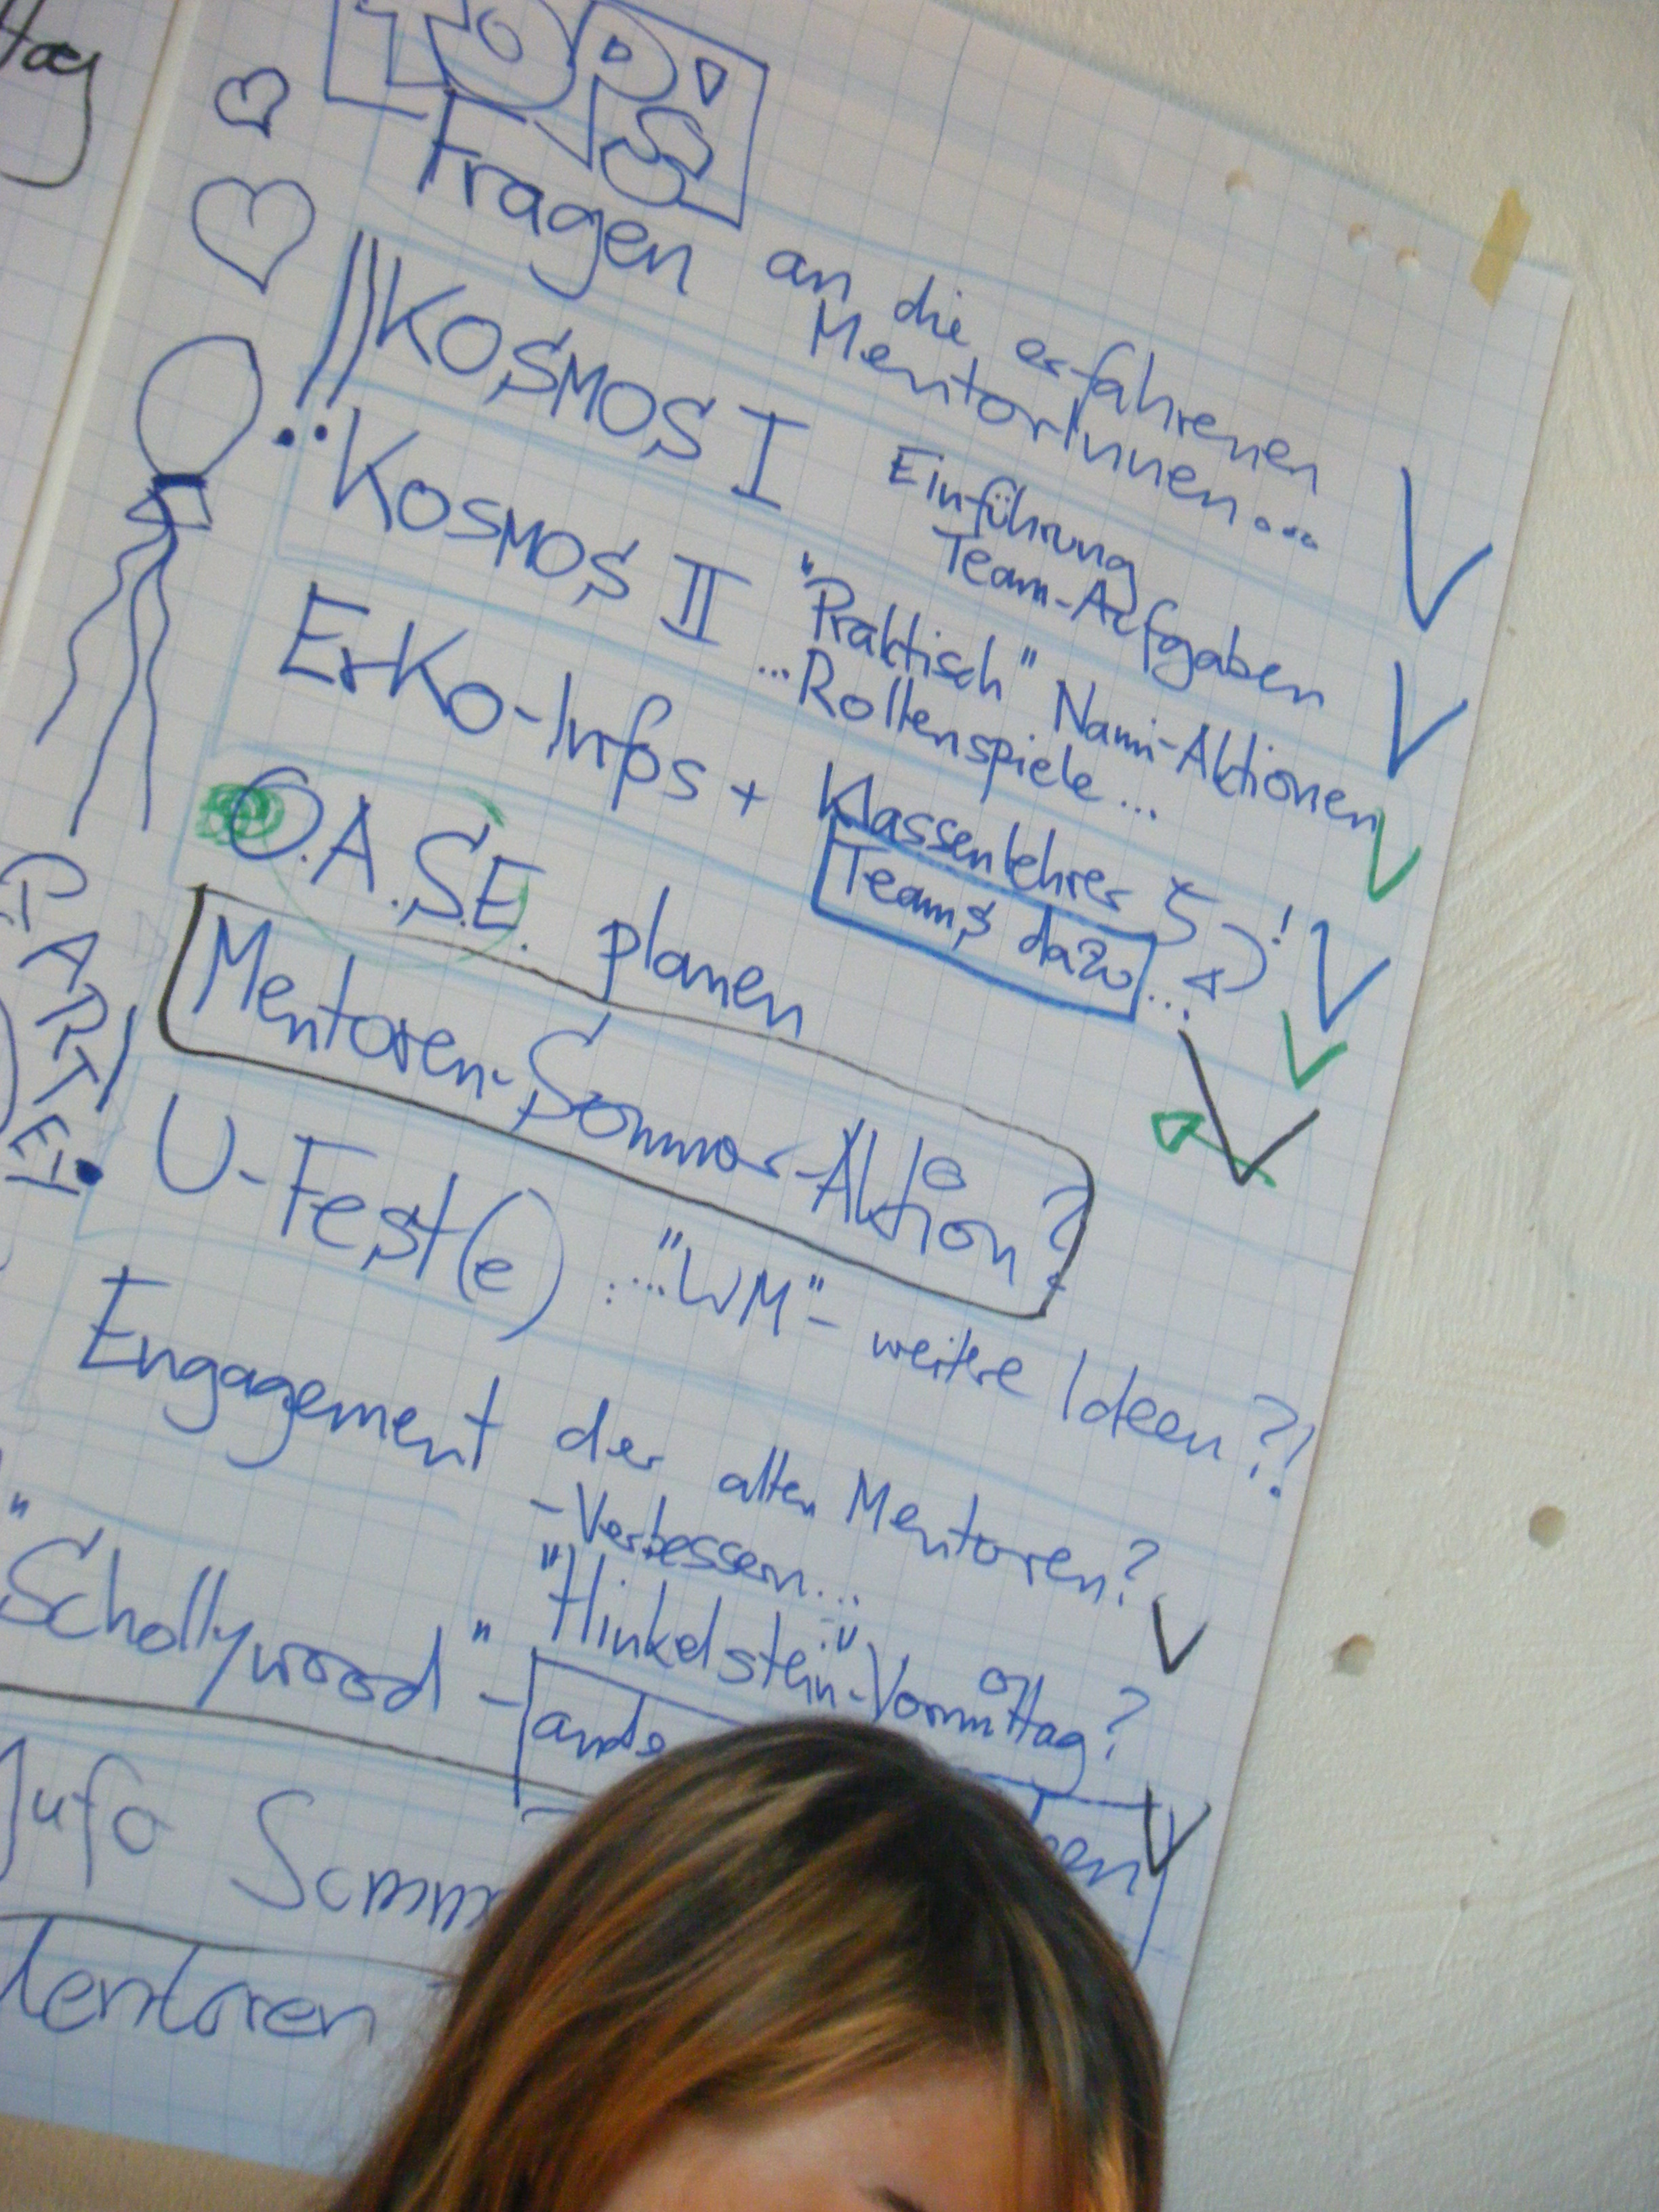 TOPS
Fragen an die erfahrenen
MentorInnen...
KOSMOS I Einführung
Team-Aufgaben
KOSMOS II "Praktisch" Nami-Aktionen
...Rollenspiele...
ErKo-Infos + Klassenlehrer 5!
Teams dazu...
O.A.S.E. planen
Mentoren-Sommer-Aktion?
U-Fest(e) ... "WM" - weitere Ideen?!
Engagement der alten Mentoren?
- Verbessern...
"Hinkelstein"-Vormittag?
"Schollywood" - ande
een
Jufo Somm
PARTEI